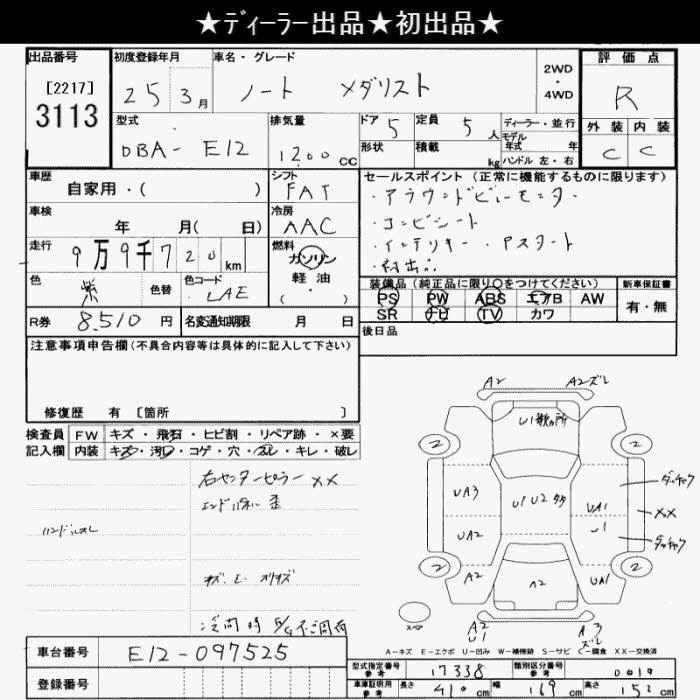 ★ディーラー出品★初出品★
出品番号
[2217]
3113
初度登録年月
25 3月
車名・グレード
ノート メダリスト
2WD
・
4WD
評価点
R
外装 内装
C C
型式
DBA-E12
排気量
1200 CC
ドア 5
定員 5人
形状
積載 kg
ディーラー・並行
モデル年式 年
ハンドル 左・右
車歴
自家用・( )
シフト
FAT
セールスポイント(正常に機能するものに限ります)
・アラウンドビューモニター
・コンビシート
・インテリキー・Pスタート
・初出品
車検
年 月( 日)
冷房
AAC
走行
9万9千720km
燃料
ガソリン
軽油
( ・ )
色
紫
色替
色コード
LAE
装備品(純正品に限り○をつけてください)
PS PW ABS エアB AW
SR ナビ TV カワ
新車保証書
有・無
R券 8,510円
名変通知期限 月 日
後日品
注意事項申告欄(不具合内容等は具体的に記入して下さい)
修復歴 有 [箇所 ]
検査員記入欄
FW キズ・飛石・ヒビ割・リペア跡・×要
内装 キズ・汚れ・コゲ・穴・スレ・キレ・破レ
右センターピラー XX
エンドパネル 歪
ハンドルスレ
キズ、E、
A2
A2ズレ
2
2
UA3
U1 U2
UA1
U1
UA2
XX
2
2
A2
A2
UA1
スペア
A2
U1
A3
ズレ
A-キズ E-エクボ U-凹み W-補修跡 S-サビ C-腐食 XX-交換済
車台番号 E12-097525
登録番号
型式指定番号
参考
17338
類別区分番号
参考
0019
車庫証明用
参考
長さ 410cm
幅 169cm
高さ 152cm